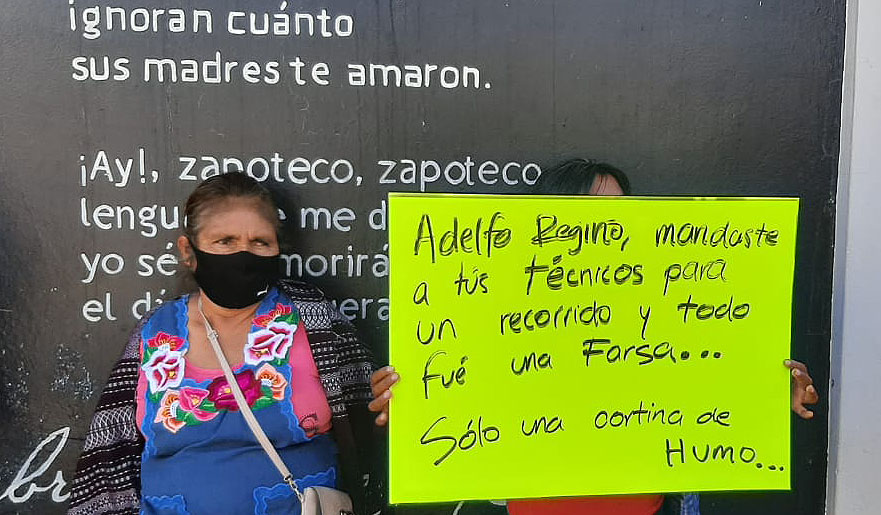 ignoran cuánto
sus madres te amaron.
¡Ay!, zapoteco, zapoteco
me
yo sé
el
Adelfo Regino, mandaste
a tús técnicos para
un recorrido y todo
fué una Farsa...
Sólo una cortina de
Humo...